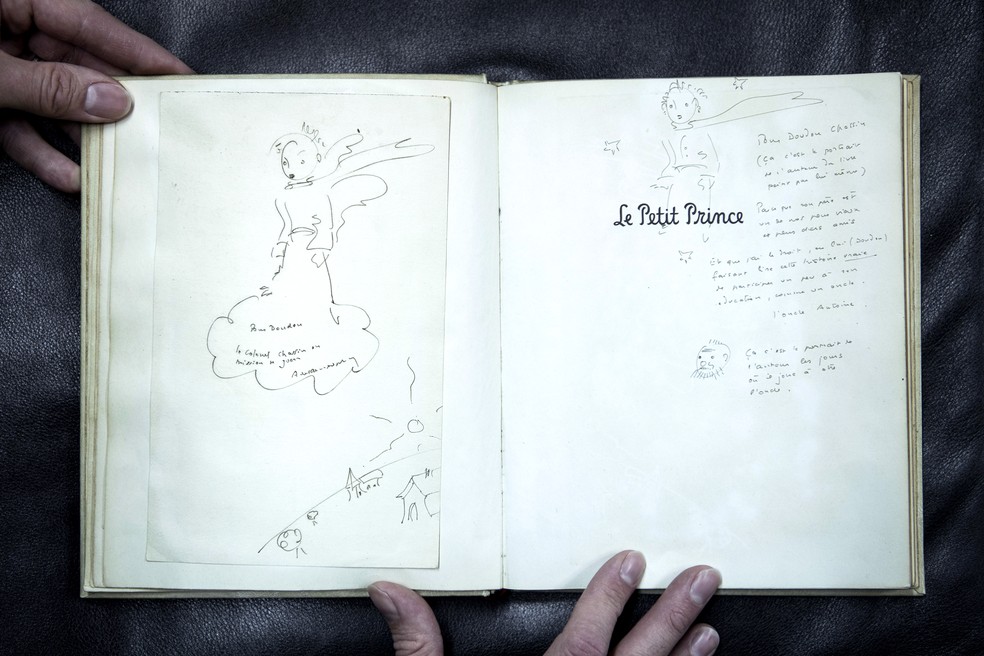 Pour Doudou
le Colonel Chassin en
mission de guerre
Le Petit Prince
Pour Doudou Chassin
(Ça c'est le portrait
de l'auteur du livre
peint par lui même)
Parce que son père est
un de mes plus vieux
et plus chers amis
Et que j'ai le droit, en lui (Doudou)
faisant lire cette histoire vraie
de participer un peu à son
éducation, comme un oncle.
l'oncle Antoine.
Ça c'est le portrait de
l'auteur les jours
où il joue à être
l'oncle.